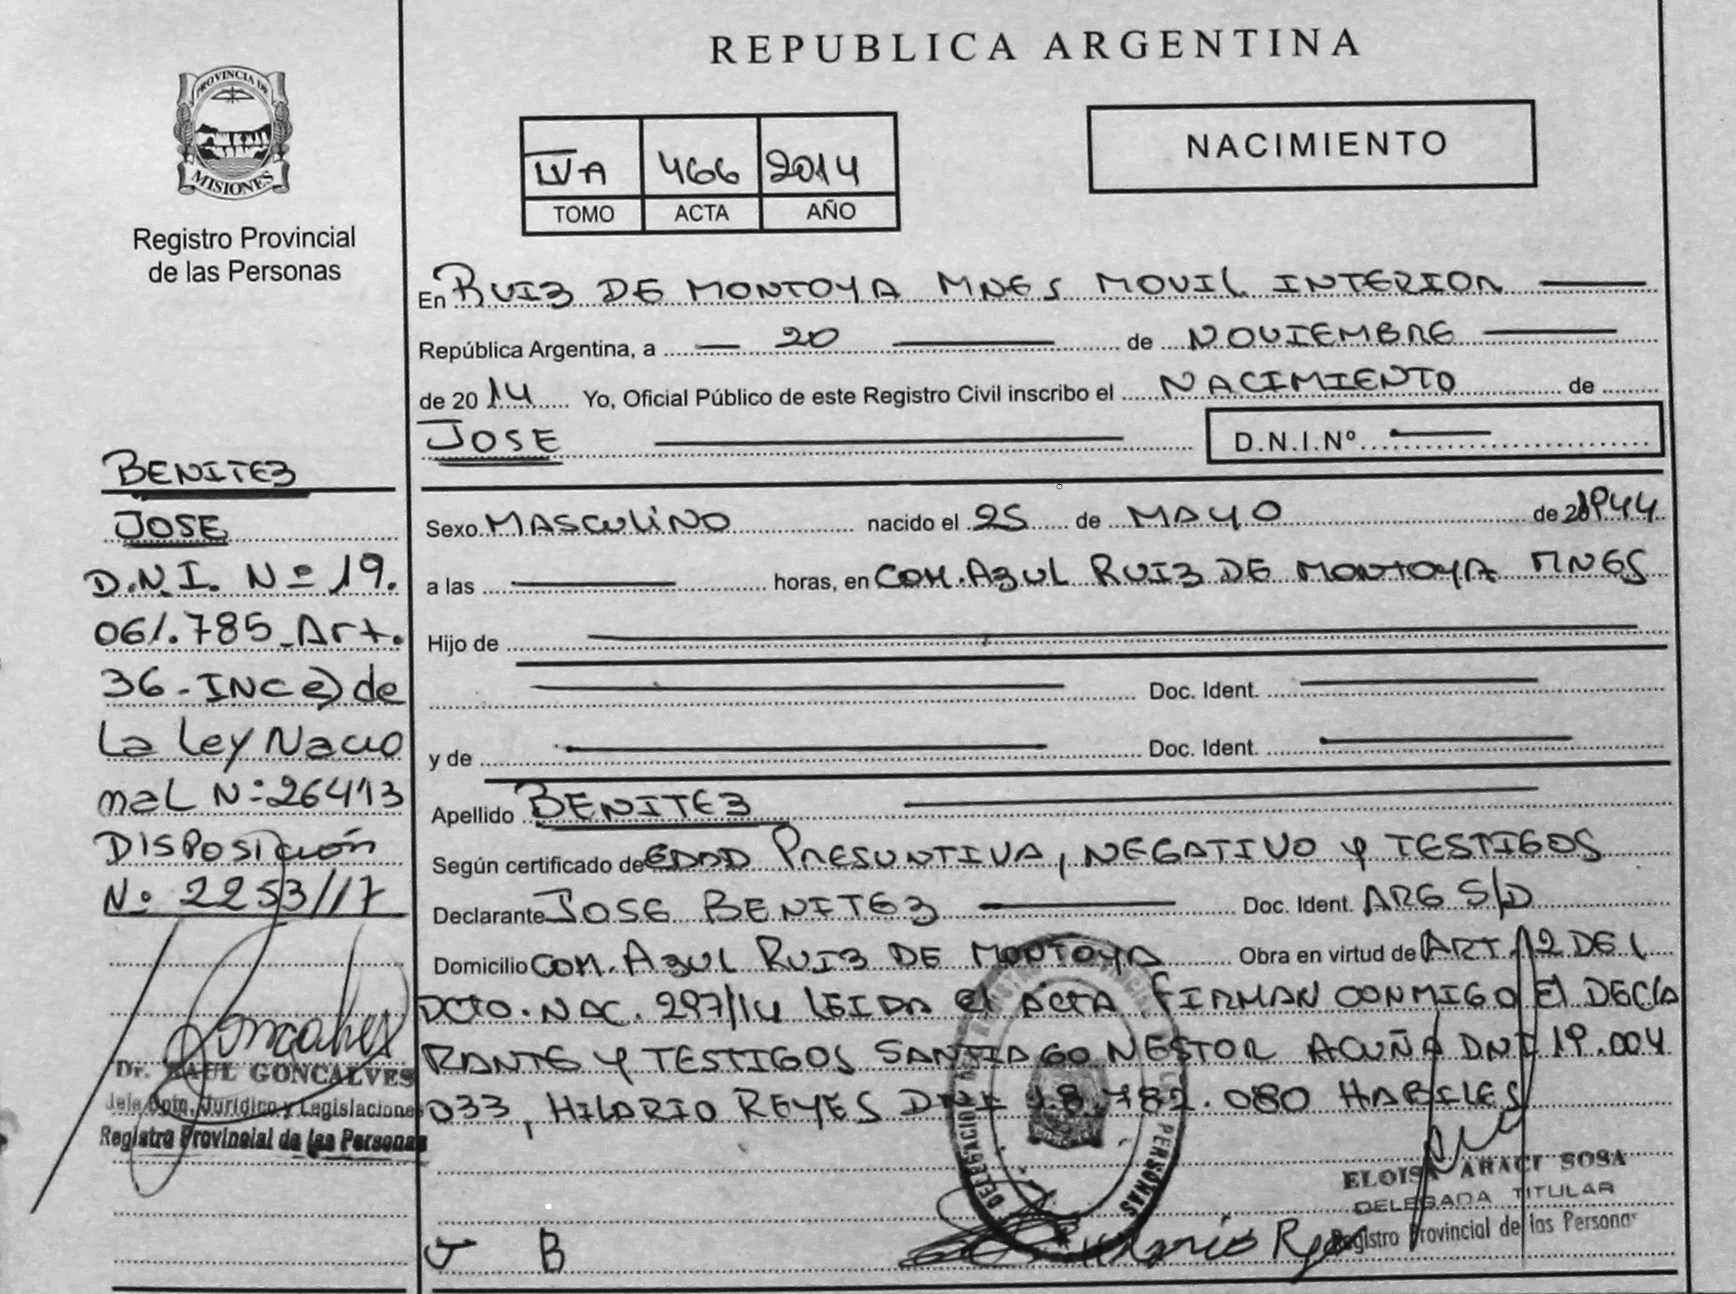 REPUBLICA ARGENTINA
PROVINCIA DE
MISIONES
Registro Provincial
de las Personas
IVA 466 2014
TOMO ACTA AÑO
NACIMIENTO
En RUIZ DE MONTOYA MNES MOVIL INTERIOR
República Argentina, a 20 de NOVIEMBRE
de 2014 Yo, Oficial Público de este Registro Civil inscribo el NACIMIENTO de
JOSE D.N.I.Nº
Sexo MASCULINO nacido el 25 de MAYO de 1944
a las horas, en COM. AZUL RUIZ DE MONTOYA MNES
Hijo de
Doc. Ident.
y de Doc. Ident.
Apellido BENITEZ
Según certificado de EDAD PRESUNTIVA, NEGATIVO Y TESTIGOS
Declarante JOSE BENITEZ Doc. Ident. ARG S/D
Domicilio COM. AZUL RUIZ DE MONTOYA Obra en virtud de ART. 12 DEL
DCTO. NAC. 297/14 LEIDA El ACTA FIRMAN CONMIGO El DECLA
RANTE Y TESTIGOS SANTIAGO NESTOR ACUÑA DNI 19.004
033, HILARIO REYES DNI 18.782.080 HABILES
BENITEZ
JOSE
D.N.I. Nº 19.
061.785_Art.
36-INC e) de
La Ley Nacio
nal Nº:26413
DISPOSICIón
Nº 2253//17
Goncalves
Dr. RAUL GONCALVES
Jefe Dpto. Jurídico y Legislaciones
Registro Provincial de las Personas
DELEGACION
PERSONAS
ELOISA ARACI SOSA
DELEGADA TITULAR
Registro Provincial de las Personas
J B